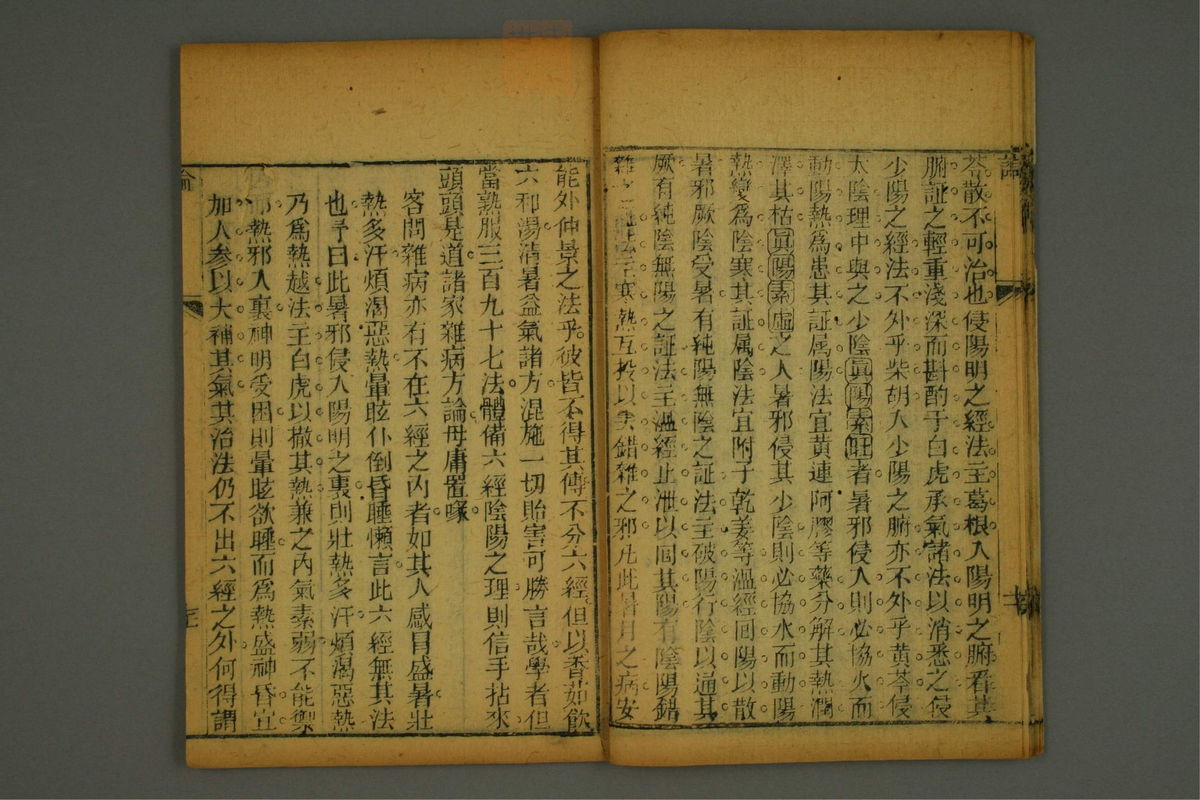 苓散不可治也侵陽明之經法主葛根入陽明之腑看其
腑証之輕重淺深而斟酌于白虎承氣諸法以消息之侵
少陽之經法不外乎柴胡入少陽之腑亦不外乎黄芩侵
太陰理中與之少陰眞陽素旺者暑邪侵入則必協火而
動陽熱爲患其証属陽法宜黄連阿膠等藥分解其熱潤
澤其枯眞陽素虛之人暑邪侵其少陰則必協水而動陽
熱變爲陰寒其証属陰法宜附子乾姜等溫經囘陽以散
暑邪厥陰受暑有純陽無陰之証法主破陽行陰以通其
厥有純陰無陽之証法主溫經止泄以囘其陽有陰陽錯
雜之証寒熱互投以去錯雜之邪凡此暑月之病安
能外仲景之法乎彼皆不得其傳不分六經但以香茹飲
六和湯清暑益氣諸方混施一切貽害可勝言哉學者但
當熟服三百九十七法體備六經陰陽之理則信手拈來
頭頭是道諸家雜病方論毋庸置喙
客問雜病亦有不在六經之内者如其人感冒盛暑壯
熱多汗煩渴惡熱暈眩仆倒昏睡懶言此六經無其法
也予曰此暑邪侵入陽明之裏則壯熱多汗煩渴惡熱
乃爲熱越法主白虎以撤其熱兼之内氣素弱不能禦
熱邪入裏神明受困則暈眩欲睡而爲熱盛神昏宜
加人参以大補其氣其治法仍不出六經之外何得謂